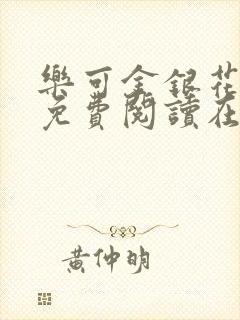 樂可金銀花
免費閱讀在
黃仲明